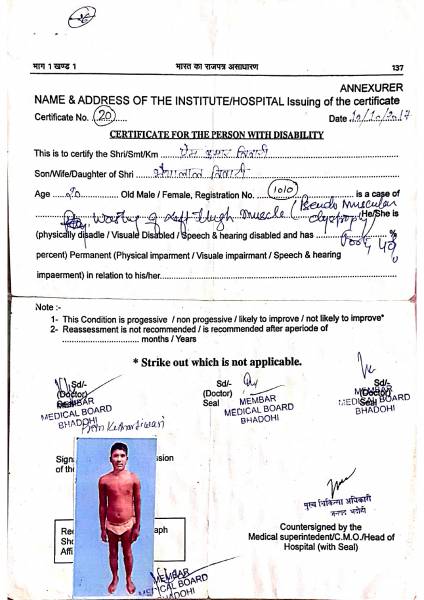 भाग 1 खण्ड 1 भारत का राजपत्र असाधारण 137
ANNEXURER
NAME & ADDRESS OF THE INSTITUTE/HOSPITAL Issuing of the certificate
Certificate No. (20) Date 10/10/2017
CERTIFICATE FOR THE PERSON WITH DISABILITY
This is to certify the Shri/Smt/Km प्रेम कुमार तिवारी
Son/Wife/Daughter of Shri
Age 20 Old Male / Female, Registration No. 1010 is a case of
Wasting of Left Thigh Muscle ( Muscular
dystrophy) He/She is
(physically disadle / Visuale Disabled / Speech & hearing disabled and has %
percent) Permanent (Physical imparment / Visuale impairmant / Speech & hearing
impaerment) in relation to his/her
Note :-
1- This Condition is progessive / non progessive / likely to improve / not likely to improve*
2- Reassessment is not recommended / is recommended after aperiode of
months / Years
* Strike out which is not applicable.
Sd/- Sd/- Sd/-
(Doctor) (Doctor) (Doctor)
Seal
MEMBAR MEMBAR MEMBAR
MEDICAL BOARD MEDICAL BOARD MEDICAL BOARD
BHADOHI BHADOHI BHADOHI
Prem Kumar Tiwari
Sign
of the
मुख्य चिकित्सा अधिकारी
जनपद भदोही
Countersigned by the
Medical superintedent/C.M.O./Head of
Hospital (with Seal)
MEMBAR
MEDICAL BOARD
BHADOHI